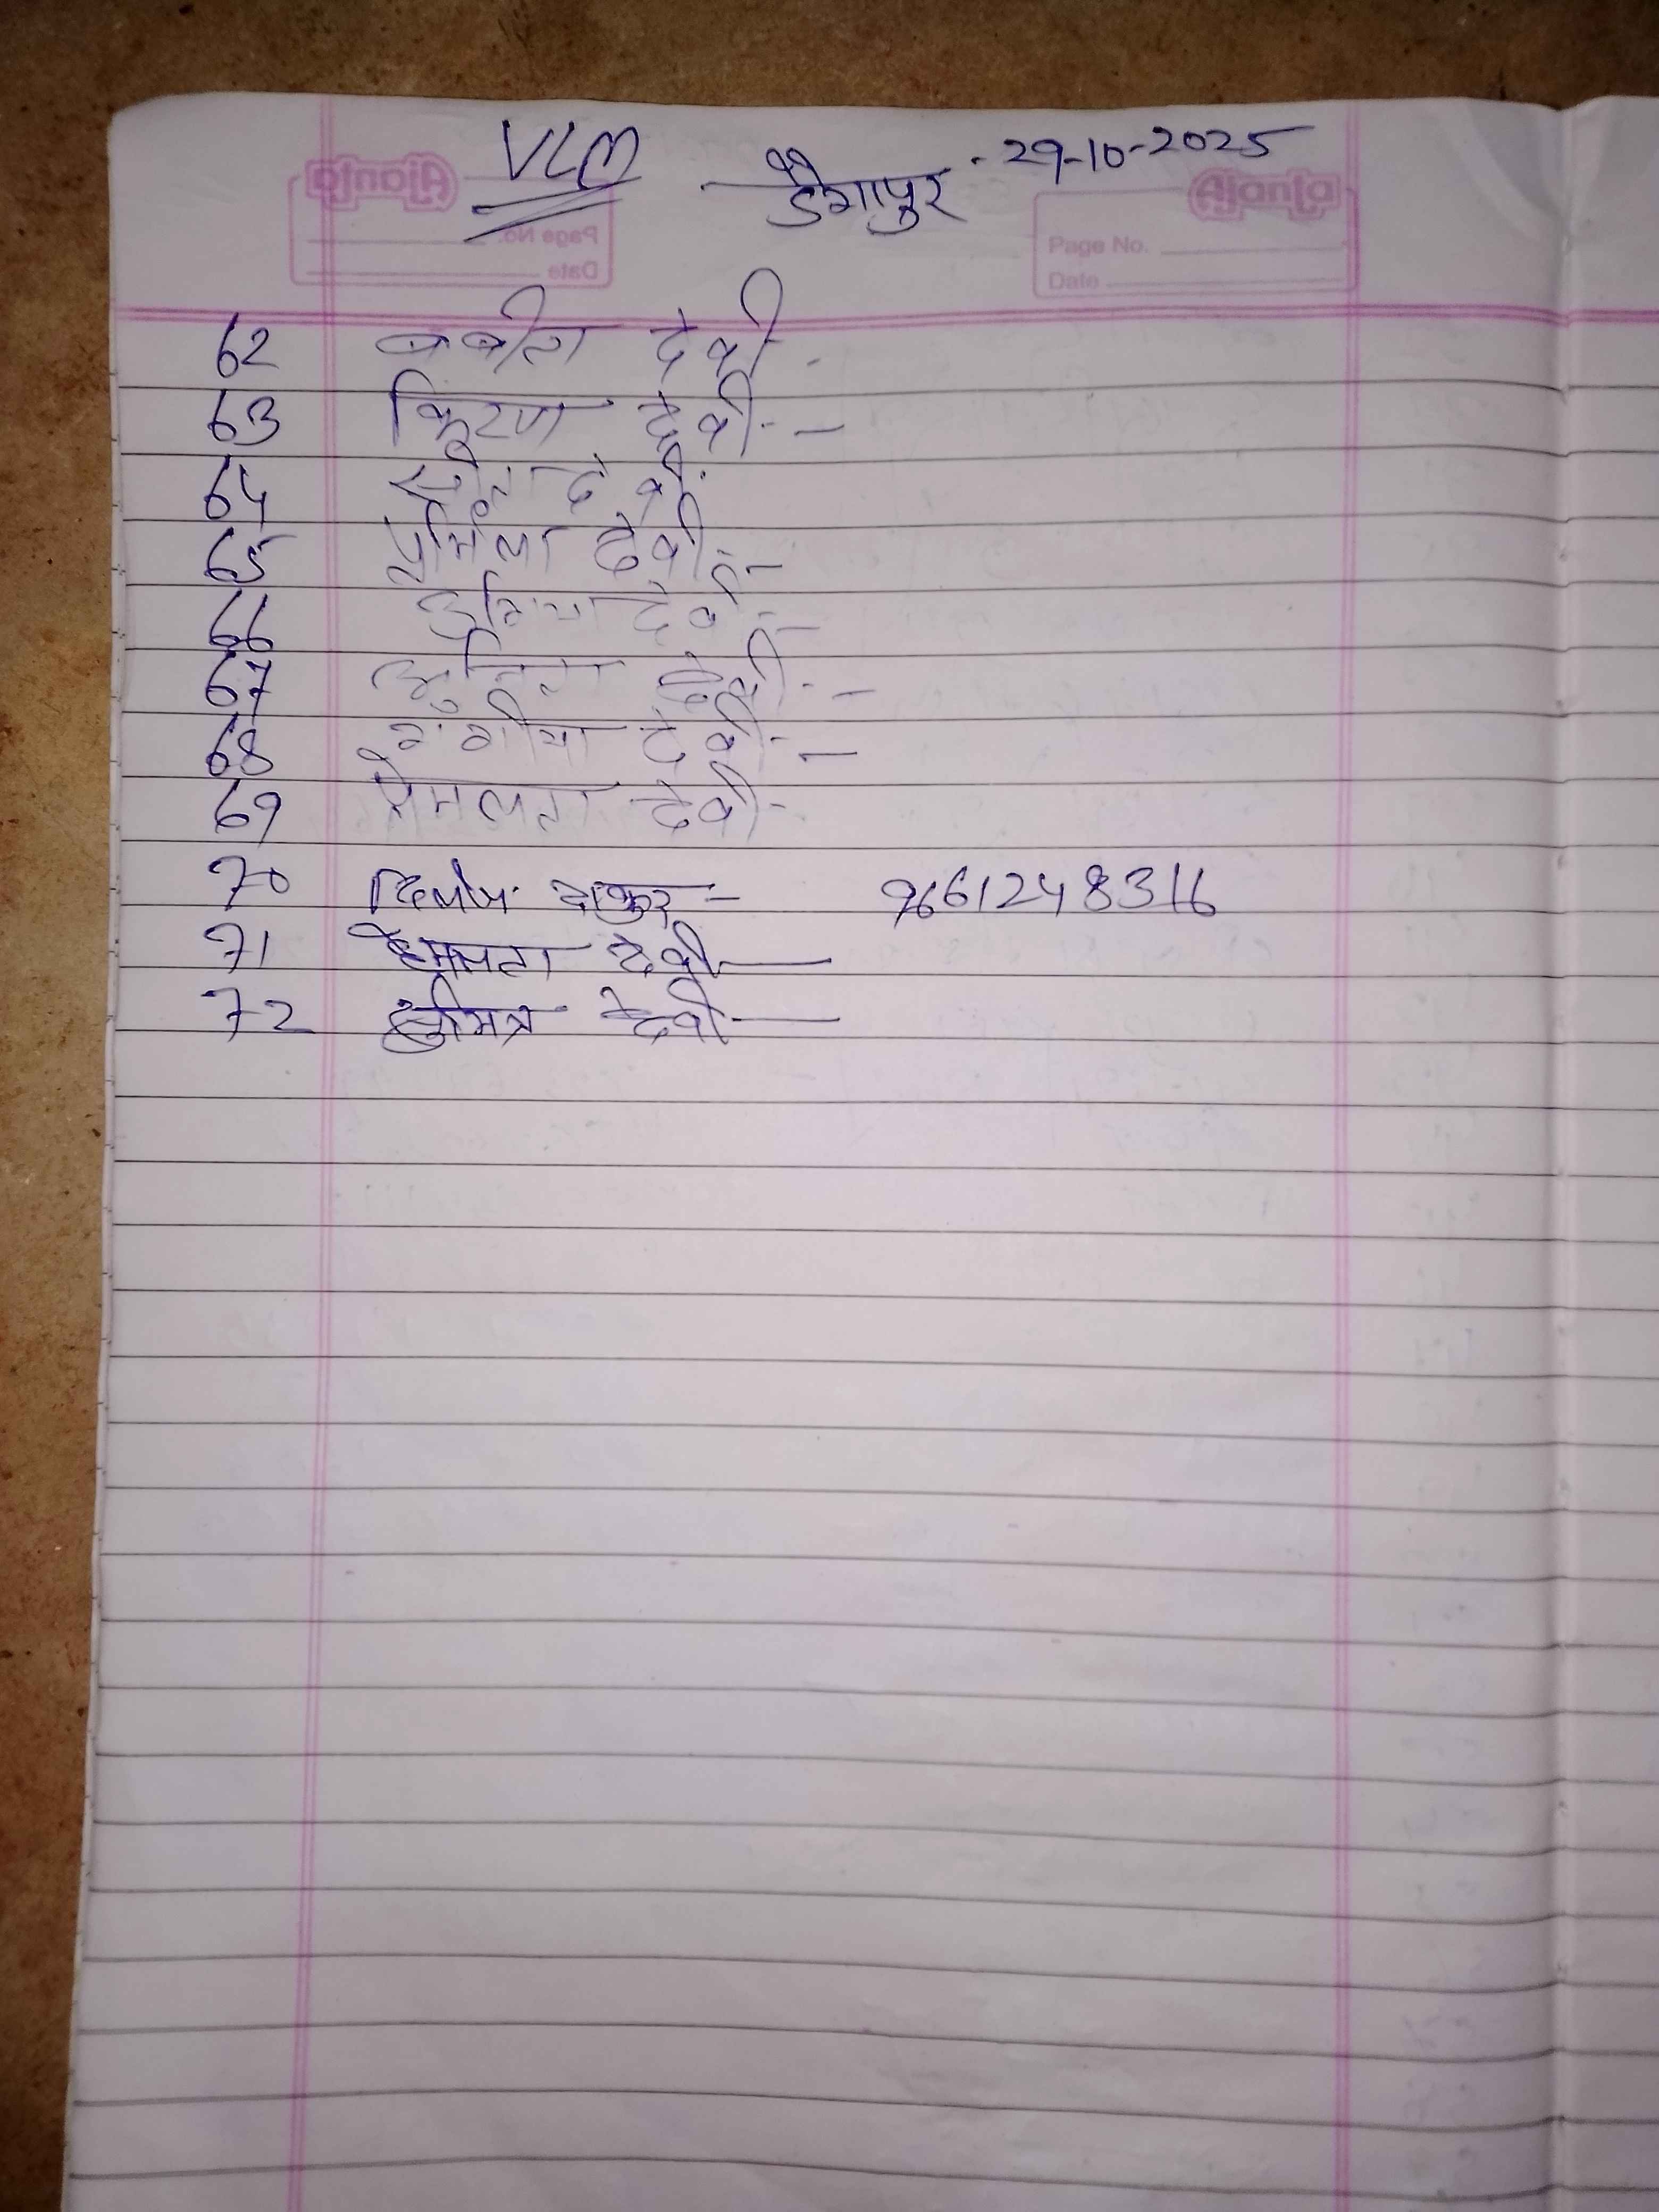 VLM डैगापुर . 29-10-2025
Ajanta
Page No.
Date
62 बबीता देवी -
63 किरण देवी -
64 देवी
65 प्रमिला देवी -
66 देवी -
67 सुनिता देवी -
68 देवी -
69 प्रेमलता देवी -
70 दिलीप ठाकुर - 9661248316
71 हेमलता देवी -
72 सुमित्र देवी -